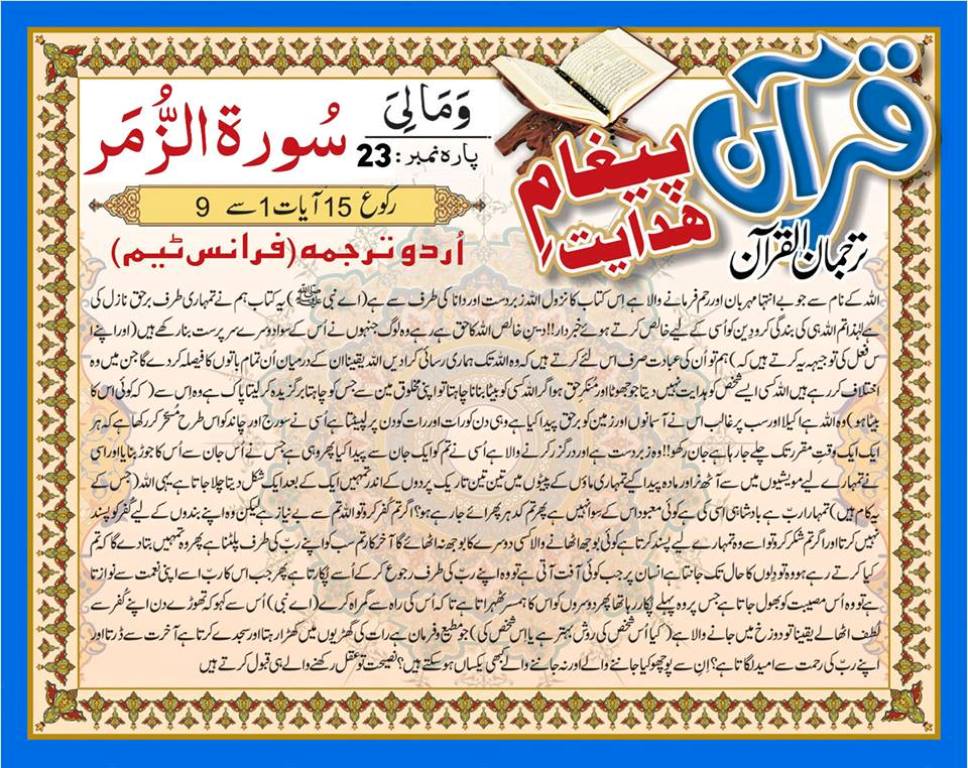 قرآن
پیغامِ
ھدایت
ترجمان القرآن
وَمَالِیَ
پارہ نمبر: 23
سُورة الزُّمَر
رکوع 15 آیات 1 سے 9
اُردو ترجمہ (فرانس ٹیم)
اللہ کے نام سے جو بے انتہا مہربان اور رحم فرمانے والا ہے اِس کتاب کا نزول اللہ زبردست اور دانا کی طرف سے ہے (اے نبی ﷺ) یہ کتاب ہم نے تمہاری طرف برحق نازل کی
ہے لہٰذا تم اللہ ہی کی بندگی کرو دین کو اُسی کے لیے خالص کرتے ہوئے خبردار!! دینِ خالص اللہ کا حق ہے رہے وہ لوگ جنہوں نے اُس کے سوا دوسرے سرپرست بنا رکھے ہیں (اور اپنے اِ
س فعل کی توجیہہ یہ کرتے ہیں کہ) ہم تو اُن کی عبادت صرف اس لئے کرتے ہیں کہ وہ اللہ تک ہماری رسائی کرا دیں اللہ یقیناً ان کے درمیان اُن تمام باتوں کا فیصلہ کر دے گا جن میں وہ
اختلاف کر رہے ہیں اللہ کسی ایسے شخص کو ہدایت نہیں دیتا جو جھوٹا اور منکرِ حق ہو اگر اللہ کسی کو بیٹا بنانا چاہتا تو اپنی مخلوق میں سے جس کو چاہتا برگزیدہ کر لیتا پاک ہے وہ اس سے (کہ کوئی اس کا
بیٹا ہو) وہ اللہ ہے اکیلا اور سب پر غالب اس نے آسمانوں اور زمین کو برحق پیدا کیا ہے وہی دن تو رات اور رات کو دن پر لپیٹتا ہے اُسی نے سورج اور چاند کو اس طرح مُسخر کر رکھا ہے کہ ہر
ایک ایک وقتِ مقرر تک چلے جا رہا ہے جان رکھو!! وہ زبردست ہے اور درگزر کرنے والا ہے اُسی نے تم کو ایک جان سے پیدا کیا پھر وہی ہے جس نے اُس جان سے اُس کا جوڑ بنایا اور اسی
نے تمہارے لیے مویشیوں میں سے آٹھ نر اور مادہ پیدا کیے تمہاری ماؤں کے پیٹوں میں تین تین تاریک پردوں کے اندر تمہیں ایک کے بعد ایک شکل دیتا چلا جاتا ہے یہی اللہ (جس کے
یہ کام ہیں) تمہارا رب ہے بادشاہی اسی کی ہے کوئی معبود اس کے سوا نہیں ہے پھر تم کدھر پھرائے جا رہے ہو؟ اگر تم کفر کرو تو اللہ تم سے بے نیاز ہے لیکن وہ اپنے بندوں کے لیے کُفر کو پسند
نہیں کرتا اور اگر تم شکر کرو تو اسے وہ تمہارے لیے پسند کرتا ہے کوئی بوجھ اٹھانے والا کسی دوسرے کا بوجھ نہ اٹھائے گا آخر کار تم سب کو اپنے ربّ کی طرف پلٹنا ہے پھر وہ تمہیں بتا دے گا کہ تم
کیا کرتے رہے ہو وہ تو دلوں کا حال تک جانتا ہے انسان پر جب کوئی آفت آتی ہے تو وہ اپنے ربّ کی طرف رجوع کر کے اُسے پکارتا ہے پھر جب اس کا ربّ اسے اپنی نعمت سے نوازتا
ہے تو وہ اُس مصیبت کو بھول جاتا ہے جس پر وہ پہلے پکار رہا تھا پھر دوسروں کو اس کا ہمسر ٹھہراتا ہے تا کہ اس کی راہ سے گمراہ کرے (اے نبی) اُس سے کہو کہ تھوڑے دن اپنے کُفر سے
لُطف اٹھا لے یقیناً تو دوزخ میں جانے والا ہے (کیا اُس شخص کی روش بہتر ہے یا اس شخص کی) جو مطیع و فرمان ہے رات کی گھڑیوں میں کھڑا رہتا اور سجدے کرتا ہے آخرت سے ڈرتا اور
اپنے ربّ کی رحمت سے امید لگاتا ہے؟ اِن سے پوچھو کیا جاننے والے اور نہ جاننے والے کبھی یکساں ہو سکتے ہیں؟ نصیحت تو عقل رکھنے والے ہی قبول کرتے ہیں